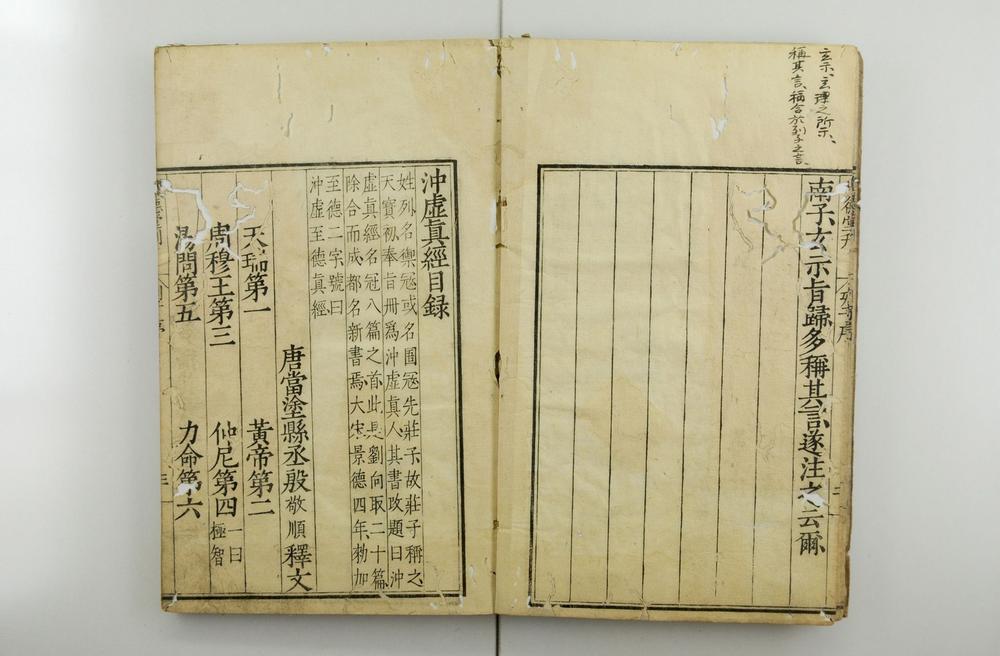 玄示、玄理之所示、
稱其言、稱合於列子之言、
南子玄示旨歸多稱其言遂注之云爾
沖虛真經目録
姓列名禦冦或名圄冦先莊子故莊子稱之
天寶初奉旨冊爲沖虛真人其書改題曰沖
虛真經名冠八篇之首此是劉向取二十篇
除合而成都名新書焉大宋景德四年勑加
至德二字號曰
沖虛至德真經
唐當塗縣丞殷敬順釋文
天瑞第一 黃帝第二
周穆王第三 仲尼第四一曰極智
湯問第五 力命第六